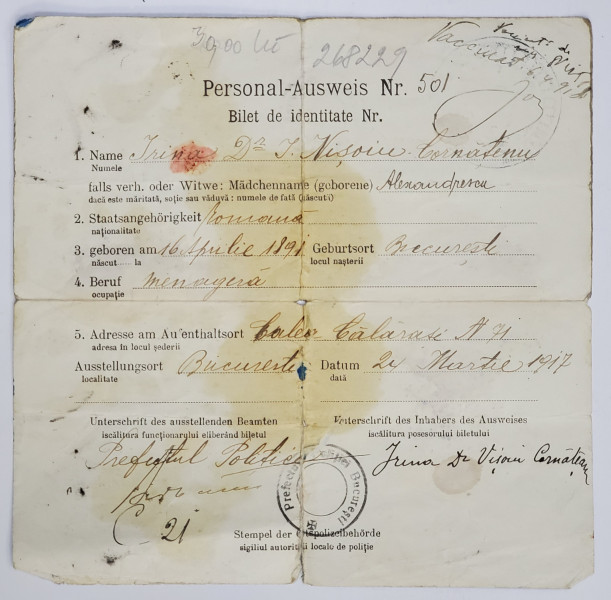 3000 lei 268229
Vaccinat
Personal-Ausweis Nr. 501
Bilet de identitate Nr.
1. Name Irina Dr I. Vișoiu Cornățenu
Numele
falls verh. oder Witwe: Mädchenname (geborene) Alexandrescu
dacă este măritată, soție sau văduvă: numele de fată (născut)
2. Staatsangehörigkeit Romană
naționalitate
3. geboren am 16 Aprilie 1891 Geburtsort București
născut la locul nașterii
4. Beruf menageră
ocupație
5. Adresse am Aufenthaltsort Calea Călărasi N 71
adresa în locul șederii
Ausstellungsort Bucuresti Datum 24 Martie 1917
localitate dată
Unterschrift des ausstellenden Beamten Unterschrift des Inhabers des Ausweises
iscălitura funcționarului eliberând biletul iscălitura posesorului biletului
Prefectul Politiei Irina Dr Vișoiu Cornățenu
21
Prefectura București
Stempel der Ortspolizeibehörde
sigiliul autorităței locale de poliție